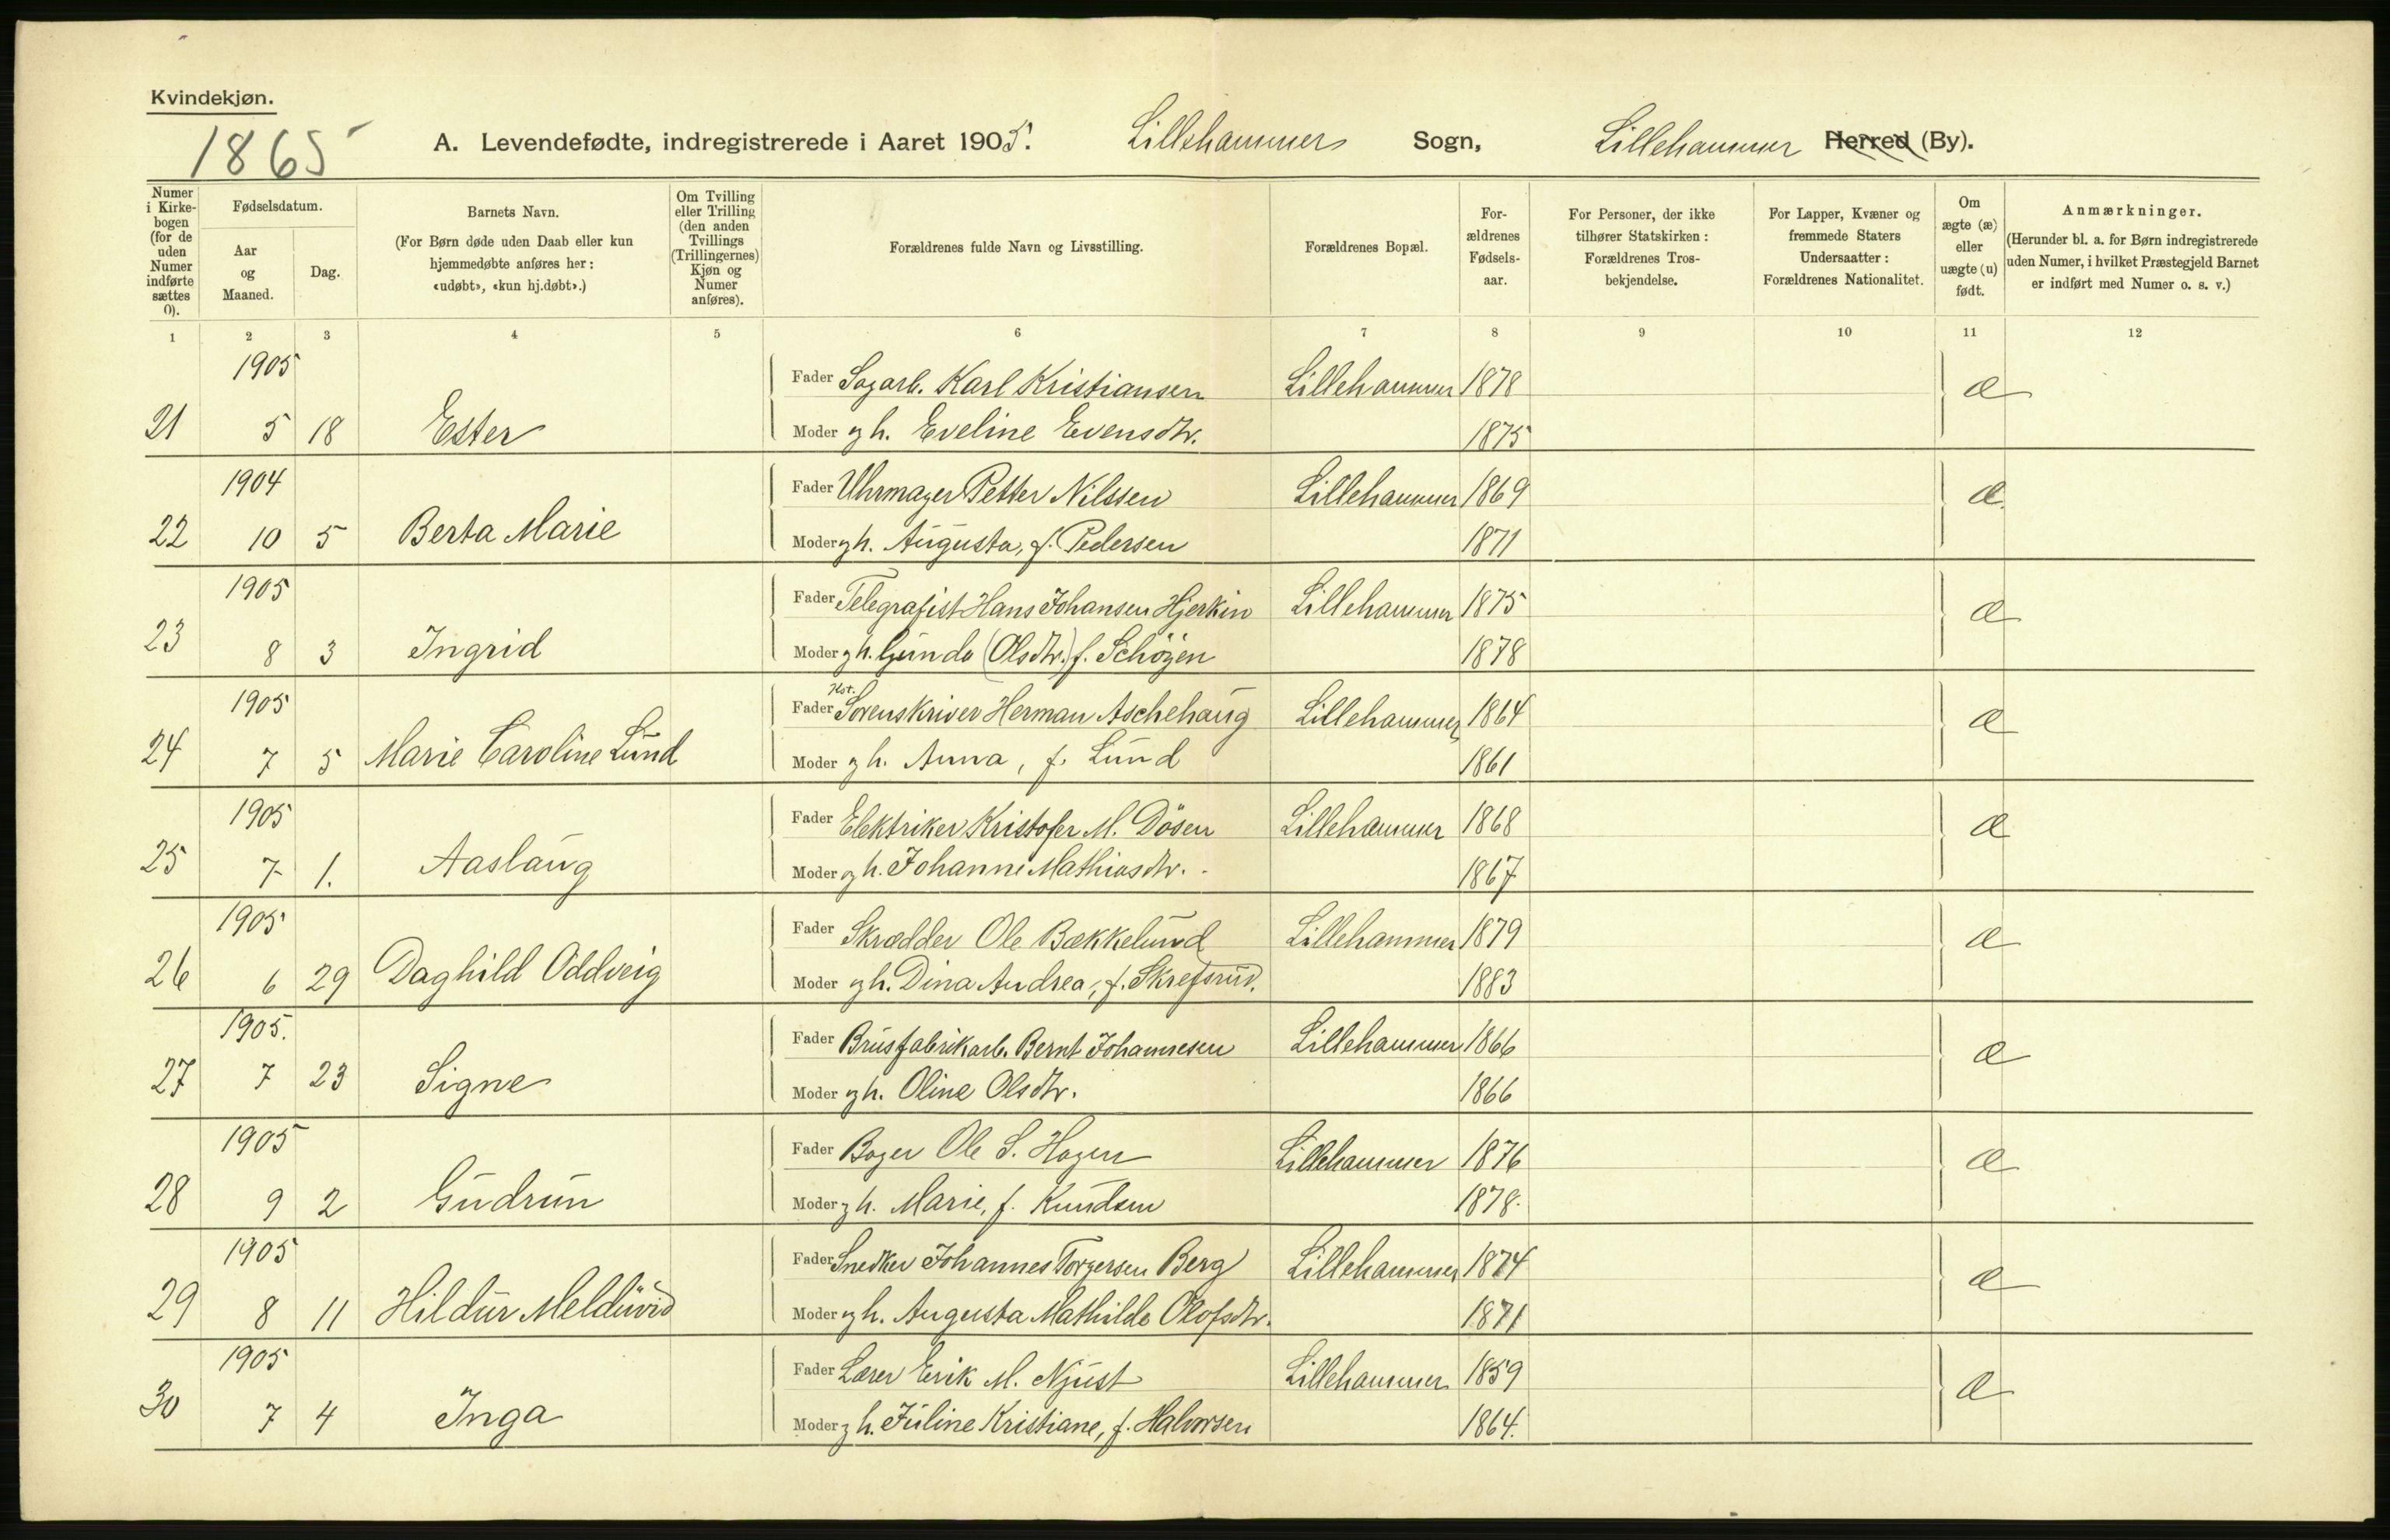 Kvindekjøn.
1865
A. Levendefødte, indregistrerede i Aaret 1905. Lillehammer Sogn, Lillehammer Herred (By).
Numer i Kirkebogen (for de uden Numer indførte sættes 0).
Fødselsdatum.
Aar og Maaned.
Dag.
Barnets Navn.
(For Børn døde uden Daab eller kun hjemmedøbte anføres her: «udøbt», «kun hj.døbt».)
Om Tvilling eller Trilling (den anden Tvillings (Trillingernes) Kjøn og Numer anføres).
Forældrenes fulde Navn og Livsstilling.
Forældrenes Bopæl.
For-ældrenes Fødsels-aar.
For Personer, der ikke tilhører Statskirken: Forældrenes Tros-bekjendelse.
For Lapper, Kvæner og fremmede Staters Undersaatter: Forældrenes Nationalitet.
Om ægte (æ) eller uægte (u) født.
Anmærkninger.
(Herunder bl. a. for Børn indregistrerede uden Numer, i hvilket Præstegjeld Barnet er indført med Numer o. s. v.)
1 2 3 4 5 6 7 8 9 10 11 12
1905 Fader Sagarb. Karl Kristiansen Lillehammer 1878 æ
21 5 18 Ester Moder gh. Eveline Evensdtr. 1875
1904 Fader Uhrmager Petter Nilssen Lillehammer 1869 æ
22 10 5 Berta Marie Moder gh. Augusta, f. Pedersen 1871
1905 Fader Telegrafist Hans Johansen Hjerkin Lillehammer 1875 æ
23 8 3 Ingrid Moder gh. Gunda (Olsdtr.) f. Schøyen 1878
1905 Fader Kst. Sorenskriver Herman Aschehaug Lillehammer 1864 æ
24 7 5 Marie Caroline Lund Moder gh. Anna, f. Lund 1861
1905 Fader Elektriker Kristofer M. Dösen Lillehammer 1868 æ
25 7 1. Aaslaug Moder gh. Johanne Mathiasdtr. 1867
1905 Fader Skrædder Ole Bækkelund Lillehammer 1879 æ
26 6 29 Daghild Oddveig Moder gh. Dina Andrea, f. Skrefsrud. 1883
1905. Fader Brusfabrikarb. Bernt Johannesen Lillehammer 1866 æ
27 7 23 Signe Moder gh. Oline Olsdtr. 1866
1905 Fader Bager Ole S. Hagen Lillehammer 1876 æ
28 9 2 Gudrun Moder gh. Marie, f. Knudsen 1878.
1905 Fader Snedker Johannes Torgersen Berg Lillehammer 1874 æ
29 8 11 Hildur Melduvid Moder gh. Augusta Mathilde Olofsdtr. 1871
1905 Fader Lærer Erik M. Njust Lillehammer 1859 æ
30 7 4 Inga Moder gh. Juline Kristiane, f. Halvorsen 1864.